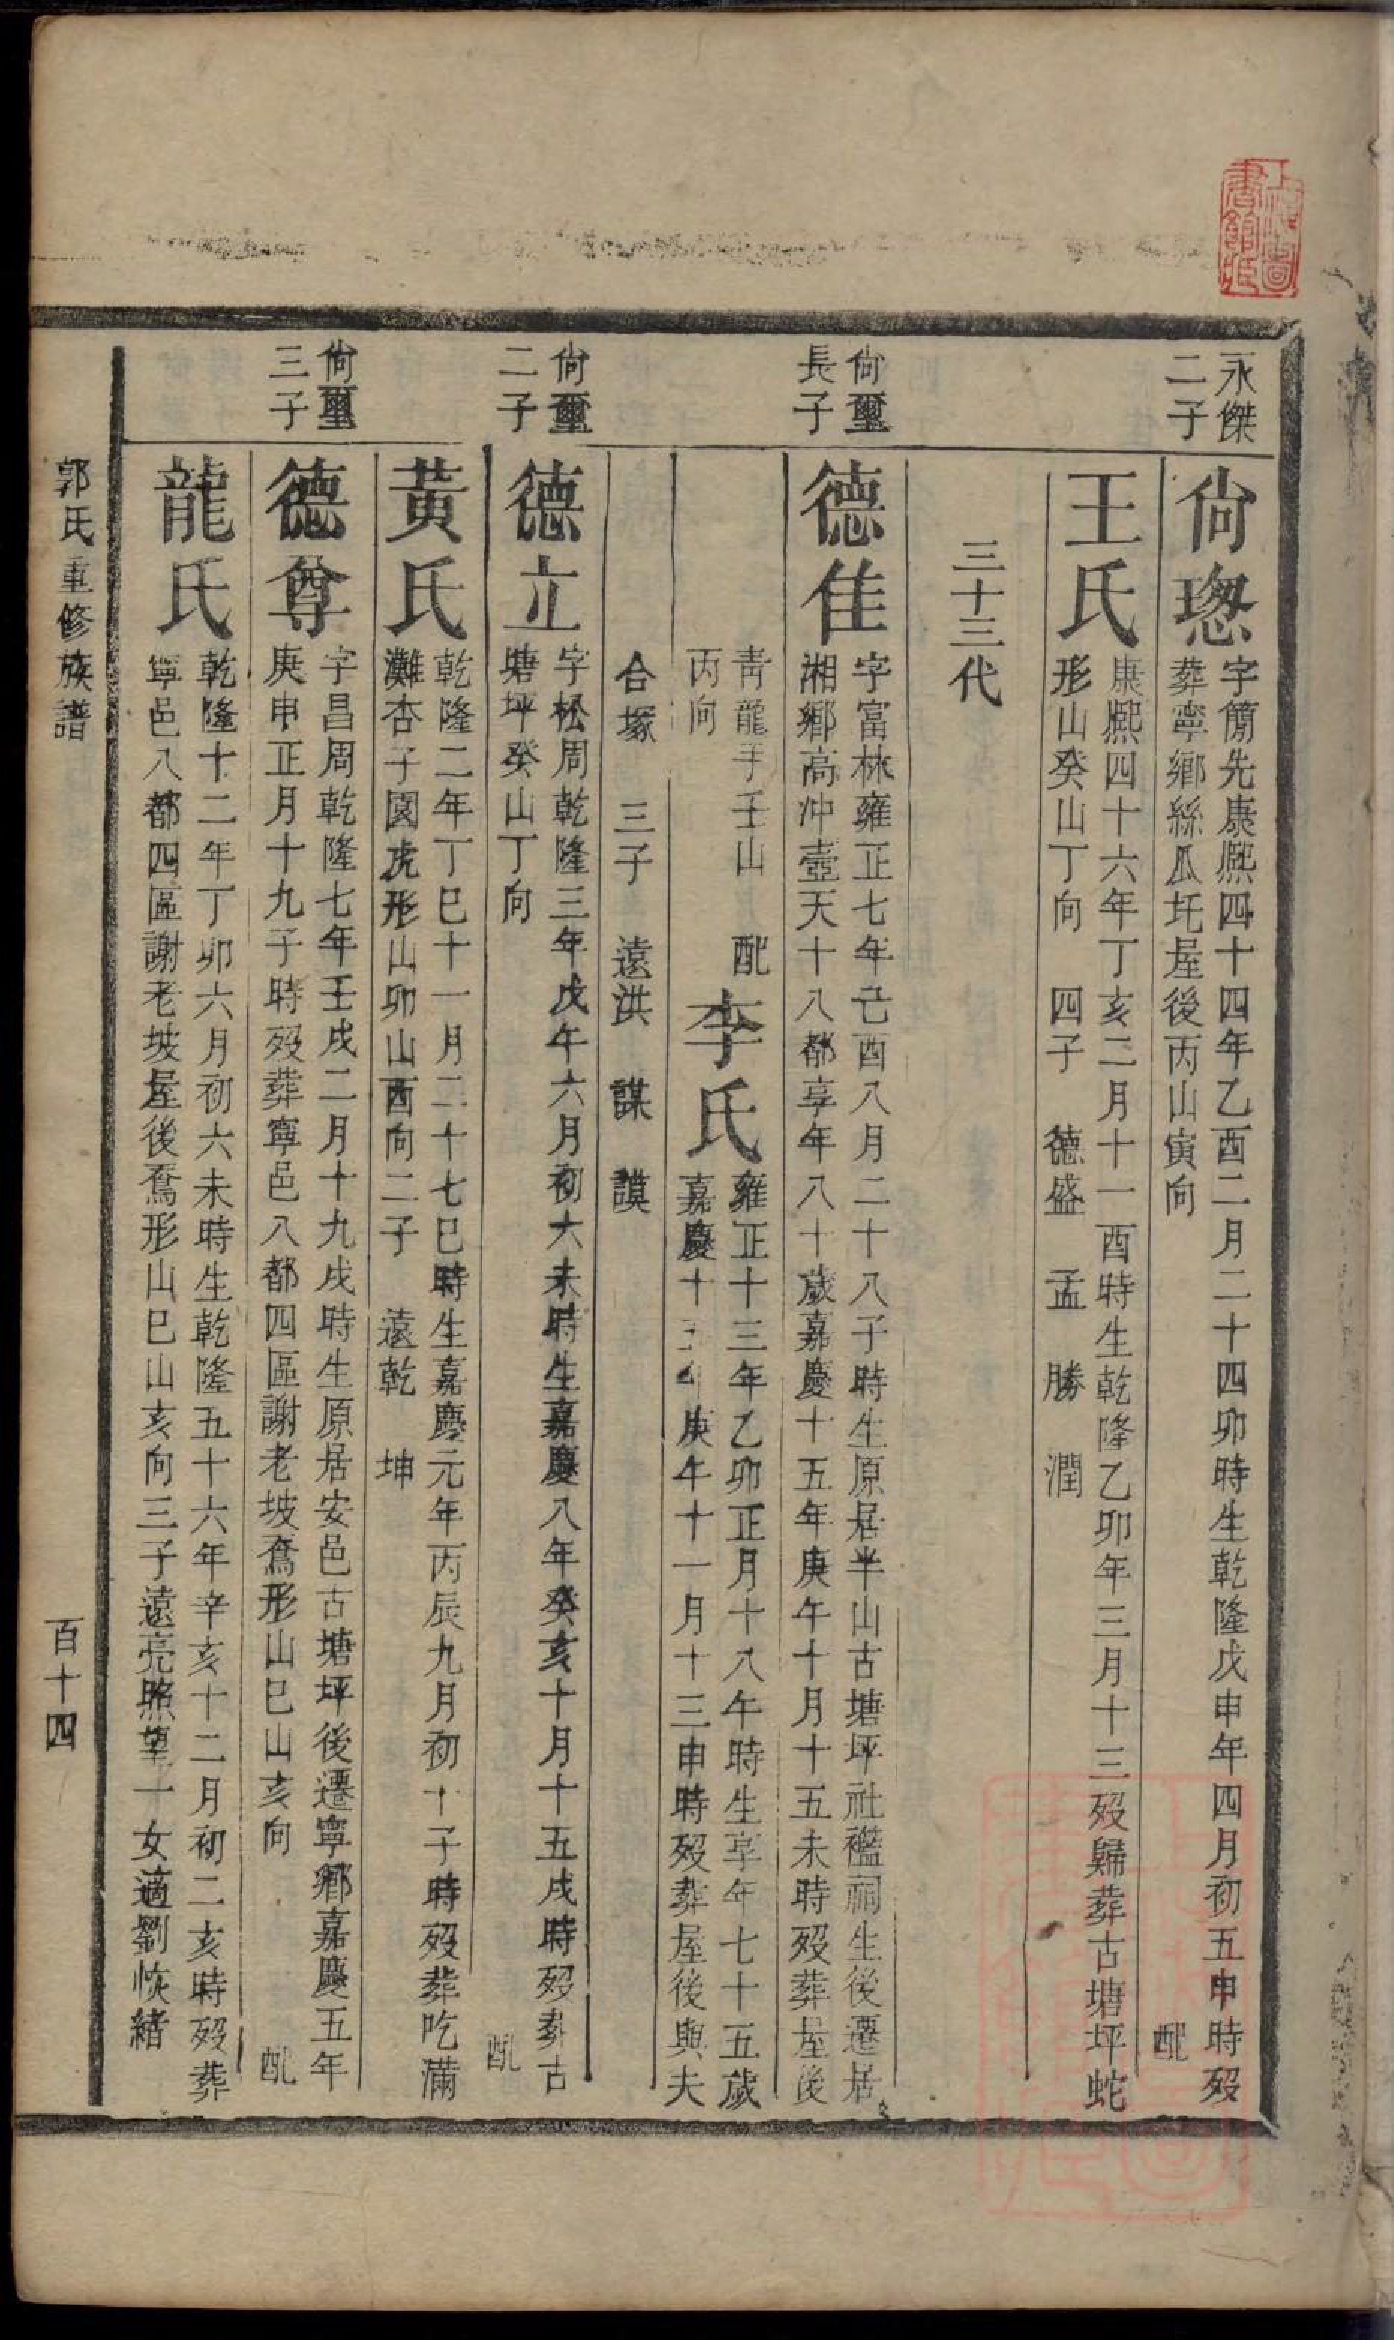 永傑
二子
尙璁
字簡先康熙四十四年乙酉二月二十四卯時生乾隆戊申年四月初五申時歿
葬寧鄉絲瓜圫屋後丙山寅向 配
王氏
康熙四十六年丁亥二月十一酉時生乾隆乙卯年三月十三歿歸葬古塘坪蛇
形山癸山丁向 四子 德盛 孟 勝 潤
三十三代
尙璽
長子
德佳
字富林雍正七年己酉八月二十八子時生原居半山古塘坪社 祠生後遷居
湘鄉高冲壺天十八都享年八十歲嘉慶十五年庚午十月十五未時歿葬屋後
青龍手壬山
丙向
配
李氏
雍正十三年乙卯正月十八午時生享年七十五歲
嘉慶十 年庚午十一月十三申時歿葬屋後與夫
合塚 三子 遠洪 謀 謨
尙璽
二子
德立
字松周乾隆三年戊午六月初六未時生嘉慶八年癸亥十月十五戌時歿葬古
塘坪癸山丁向 配
黃氏
乾隆二年丁巳十一月二十七巳時生嘉慶元年丙辰九月初十子時歿葬吃滿
灘杏子園虎形山卯山酉向二子 遠乾 坤
尙璽
三子
德尊
字昌周乾隆七年壬戌二月十九戌時生原居安邑古塘坪後遷寧鄉嘉慶五年
庚申正月十九子時歿葬寧邑八都四區謝老坡鴌形山巳山亥向 配
龍氏
乾隆十二年丁卯六月初六未時生乾隆五十六年辛亥十二月初二亥時歿葬
寧邑八都四區謝老坡屋後鴌形山巳山亥向三子遠亮照望一女適劉恢緒
郭氏重修族譜
百十四